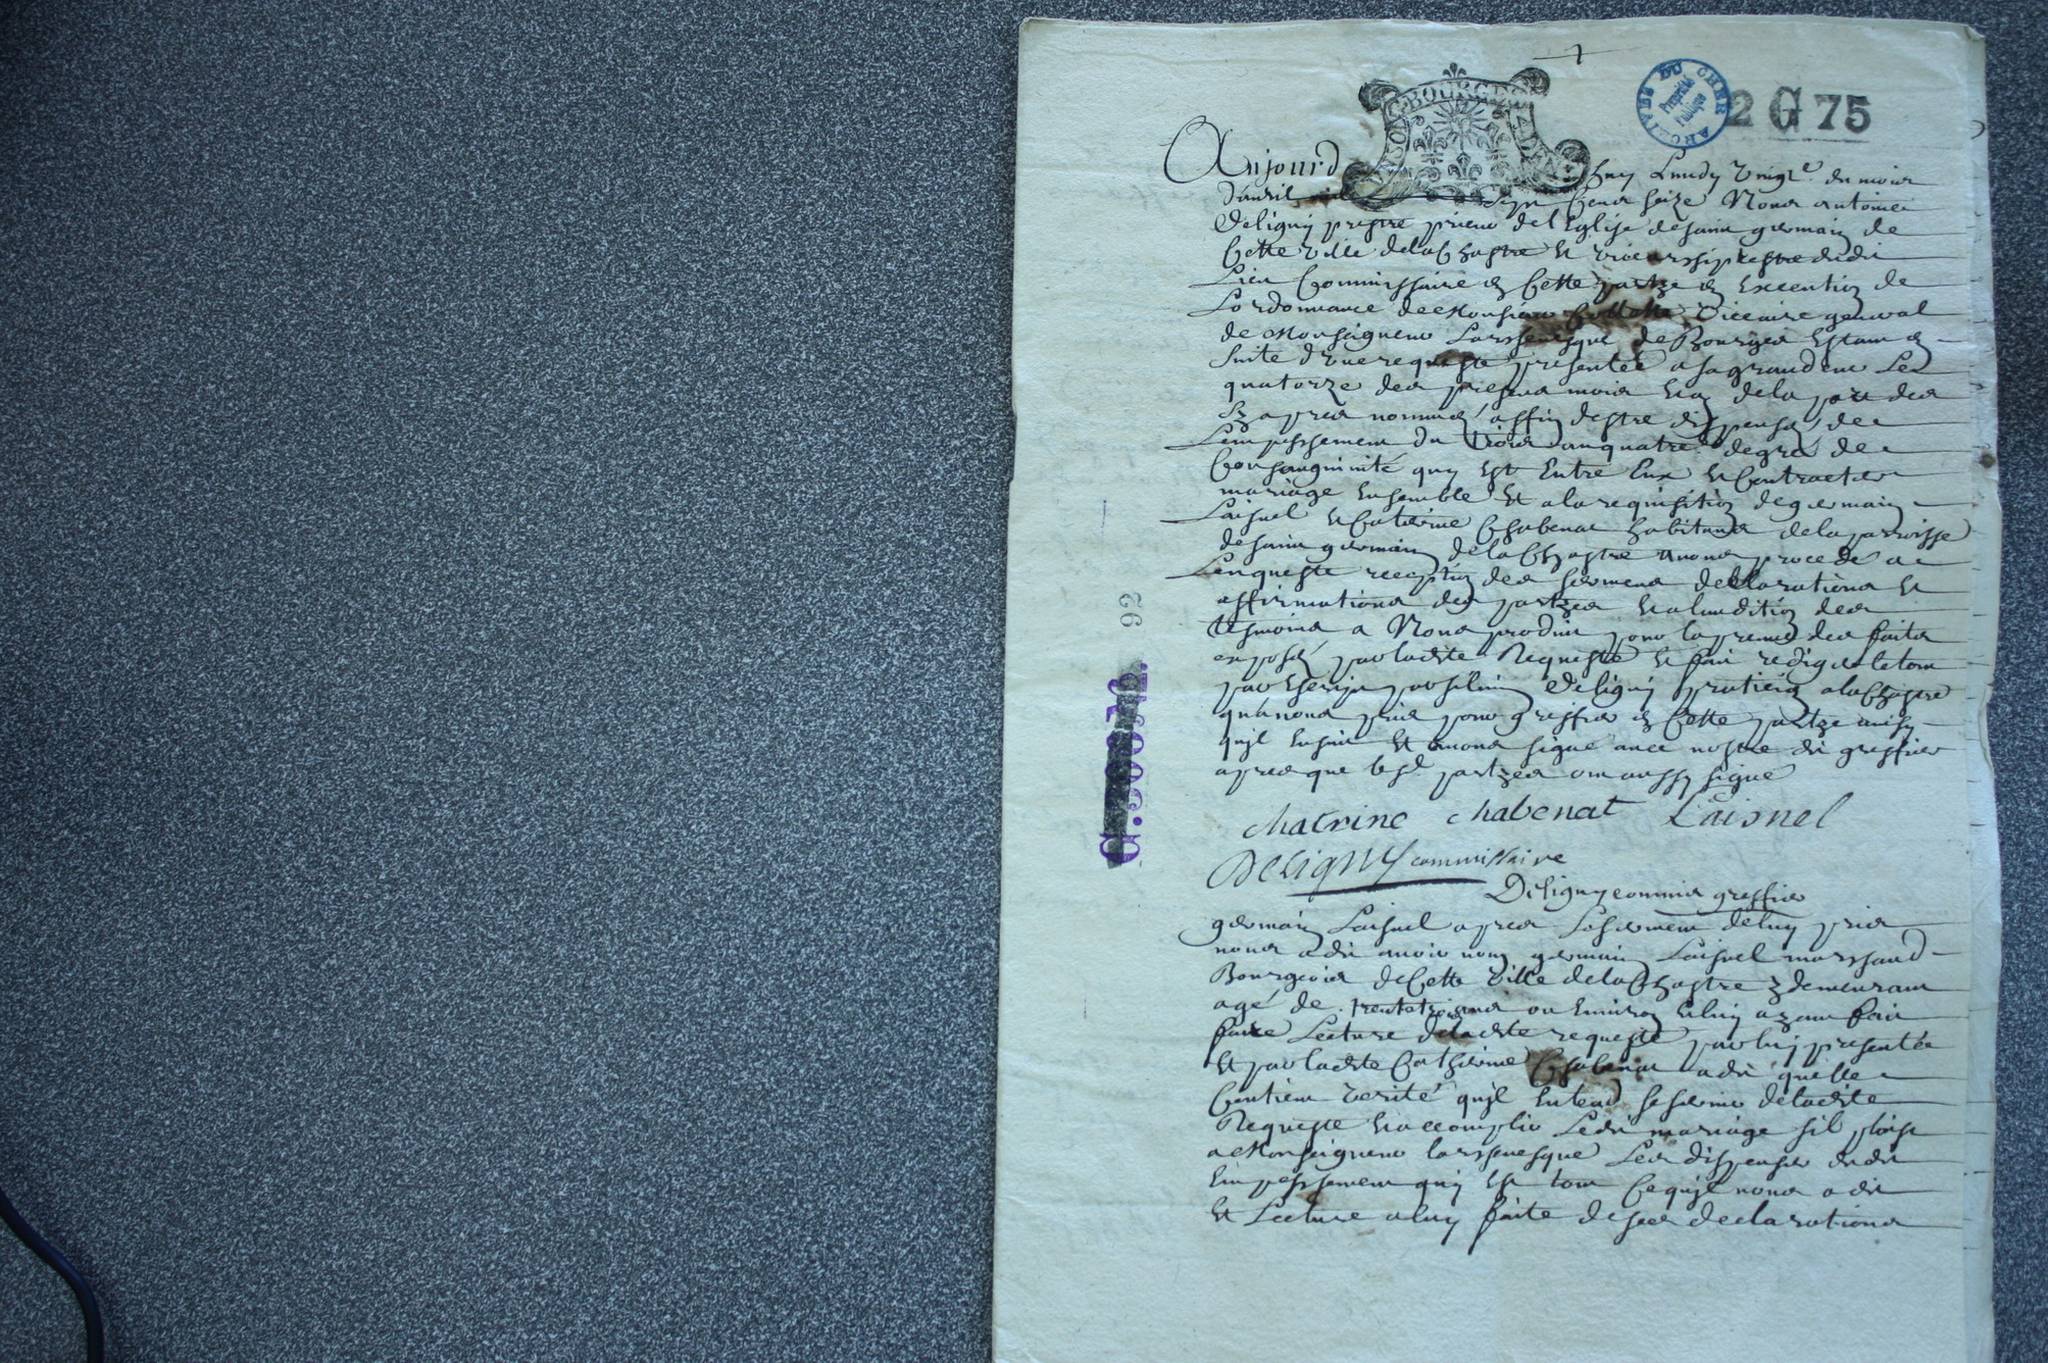 2 G 75
ARCHIVES DU CHER
Propriété Publique
BOURGES
Aujourd huy Lundy vingt du mois
d'avril mil sept cens seize Nous antoine
Deligny prestre prieur de l'Eglise de saint germain de
Cette ville delaChastre et viceassiprestre dudit
Lieu Commissaire en Cette partye en Execution de
Lordonnance de Monsieur Vicaire general
de Monseigneur Larshevesque de Bourges Estant en
suite d'une requeste presentée a sa grandeur Le
quatorze des presens mois et an dela part des
cy apres nommés affin destre dispensés de
Lempeschement du trois au quatre degré de
Consanguinité quy est Entre Eux et Contracter
mariage Ensemble Et a la requisition de germain
Laisnel et Caterine Chabenat habitans dela parroisse
de saint germain delaChastre avons procedé a
Lenqueste reception des sermens declarations et
affirmations des partyes et a laudition des
tesmoins a Nous produit pour la preuve des faits
exposés par ladite Requeste et fait rediger le tout
par Escript par Deligny pratiein a laChastre
qu'avons pris pour greffier en Cette partye ainsy
quil Ensuit et avons signé avec nostre dit greffier
apres que lesd. partyes ont aussy signé
chatrine chabenat Laisnel
Deligny commissaire
Deligny commis greffier
germain Laisnel apres Leserment deluy pris
nous a dit avoir nom germain Laisnel marshand
Bourgeois deCette ville delaChastre y demeurant
agé de trentetrois ans ou Environ Et luy ayant fait
faire Lecture deladite requeste par luy presentée
Et par ladite Catherine Chabenat a dit quelle
Contient verité quil Entend se servir deladite
Requeste et accomplir Ledit mariage sil plaist
a Monseigneur larshevesque Les dispenser dudit
Empeschement quy est tout Cequil nous a dit
Et Lecture a luy faite de ses declarations
G. 92